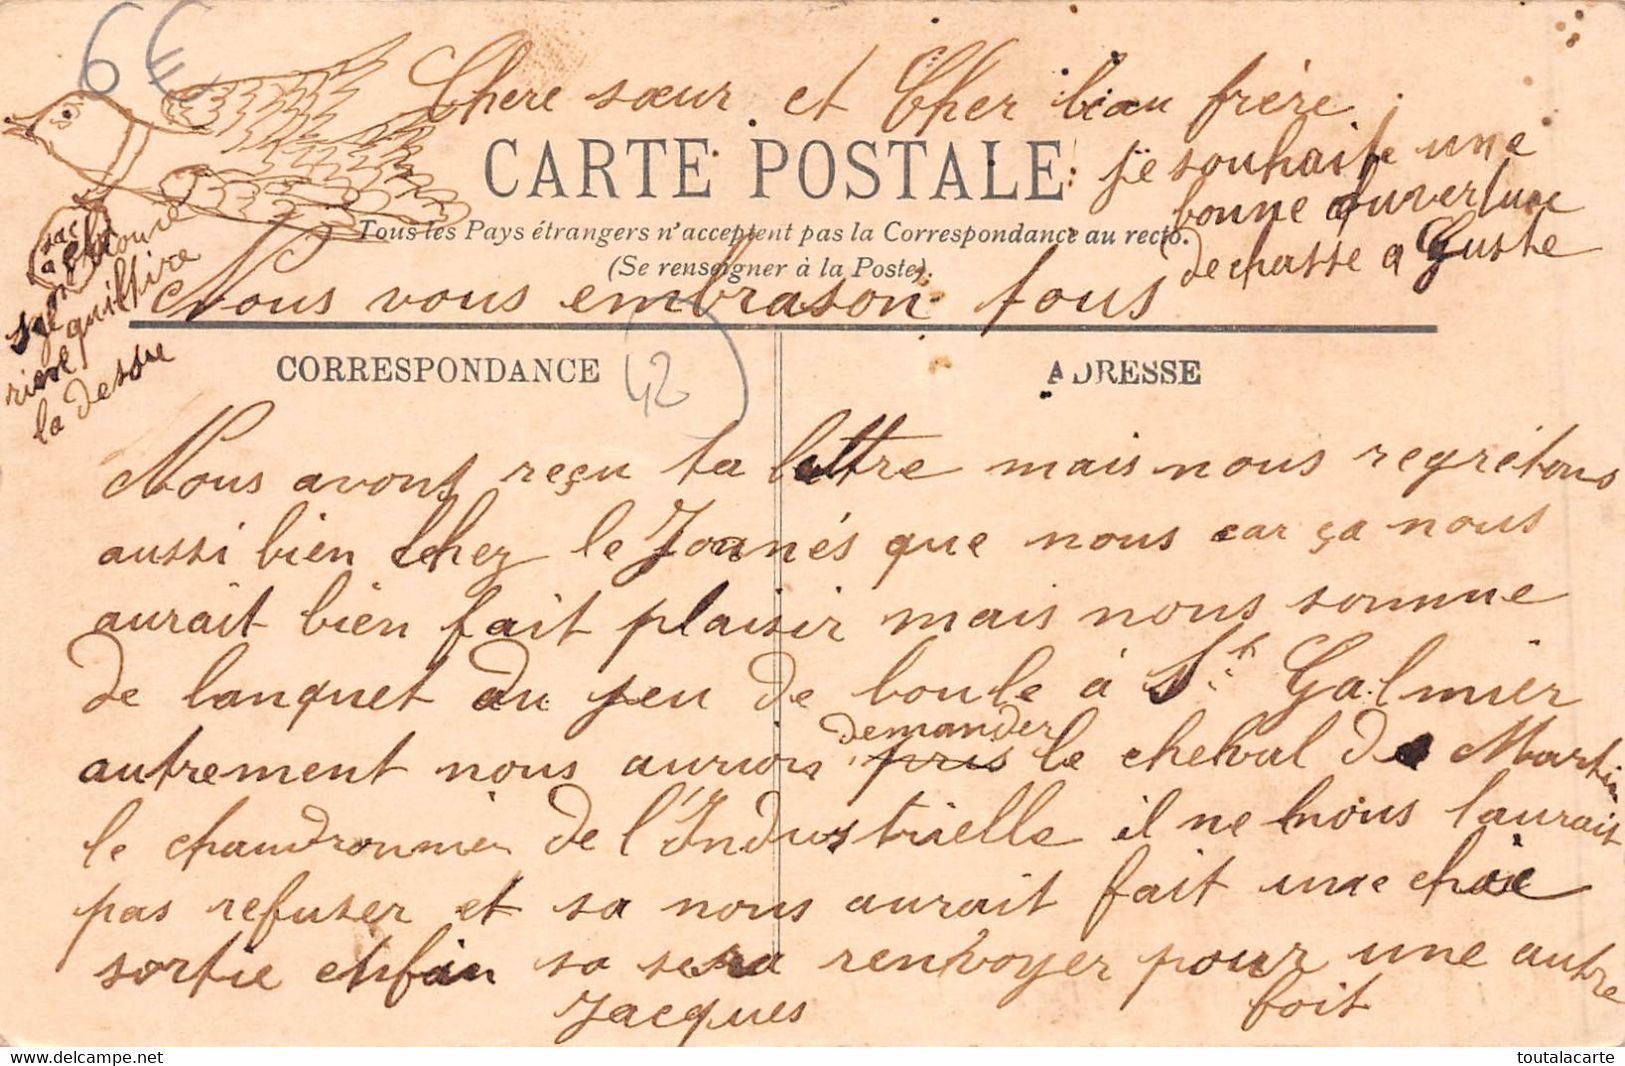 6 €
Chere sœur et Cher beau frère
CARTE POSTALE
je souhaite une
bonne ouverture
de chasse a Guste
Tous les Pays étrangers n'acceptent pas la Correspondance au recto.
(Se renseigner à la Poste).
Nous vous embrason tous
sac
quil tire
la dessu
CORRESPONDANCE
42
ADRESSE
Nous avons reçu ta lettre mais nous regrétons
aussi bien chez le Joanés que nous car ça nous
aurait bien fait plaisir mais nous somme
de banquet du jeu de boule à St Galmier
autrement nous aurions pris demander le cheval de Martin
le chaudronnier de l'Industrielle il ne nous laurait
pas refuser et sa nous aurait fait une chic
sortie enfin sa sera renvoyer pour une autre
foit
Jacques
delcampe.net
toutalacarte